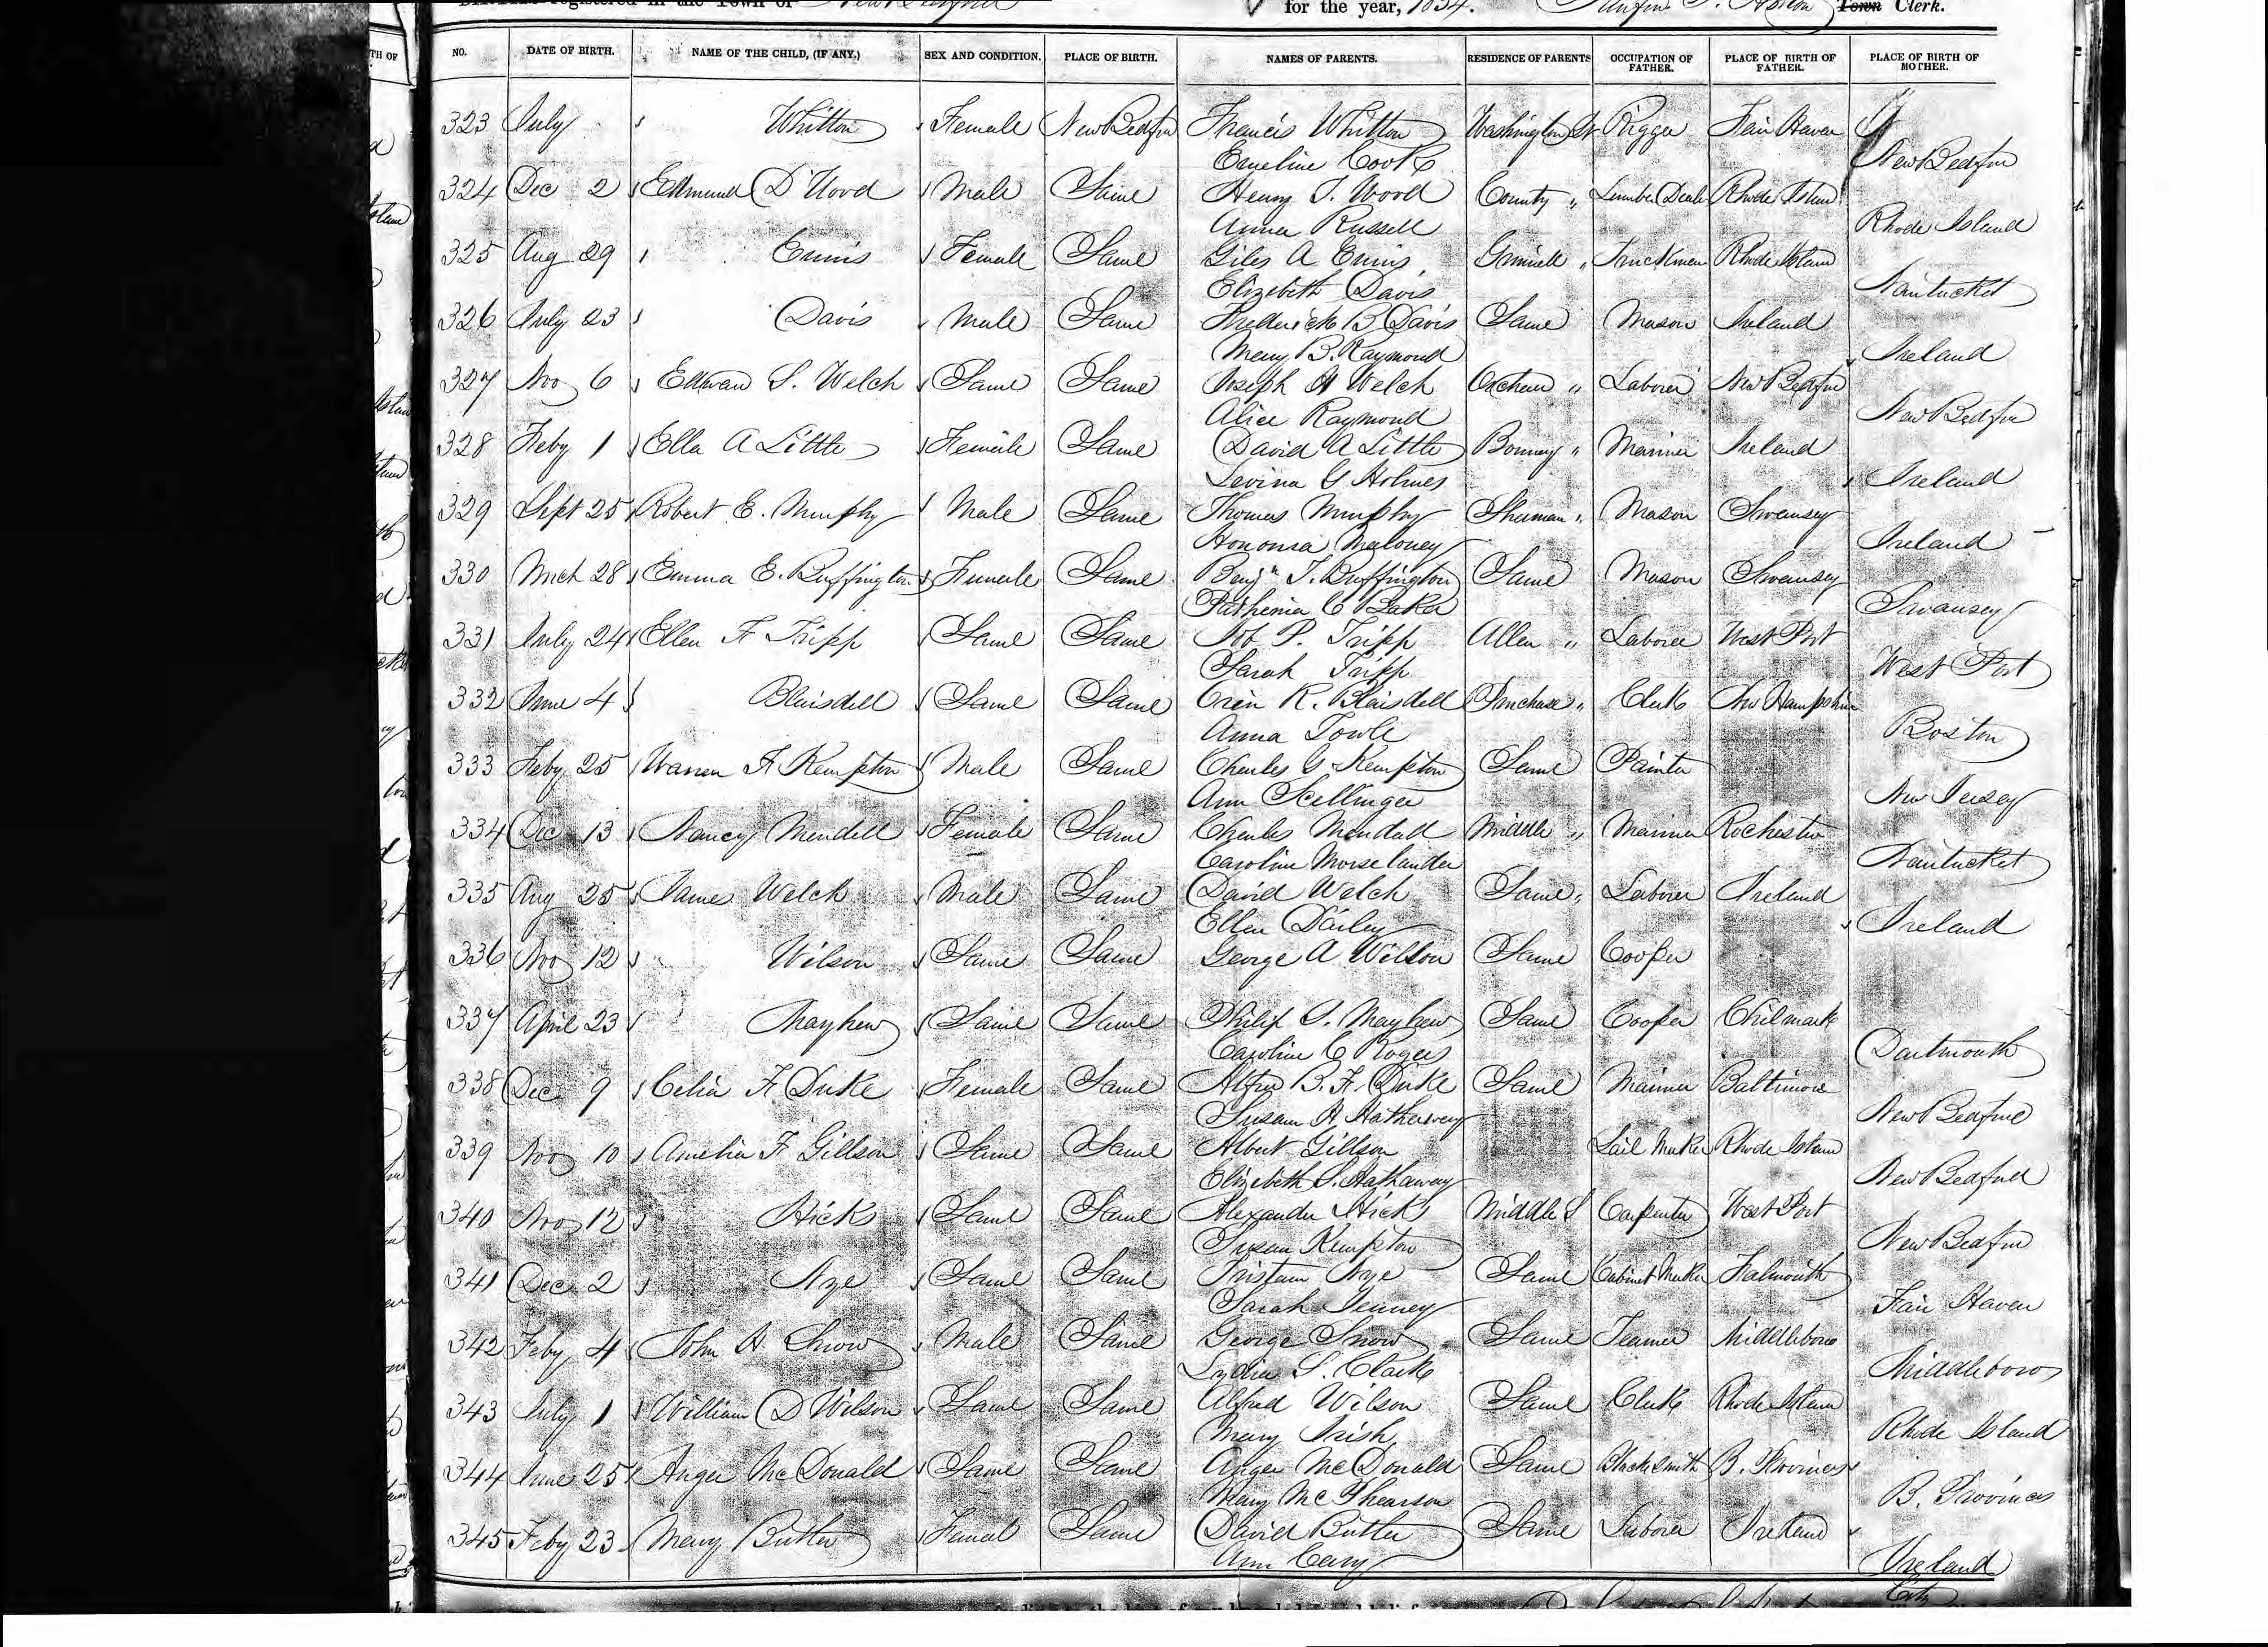 BIRTHS registered in the Town of New Bedford for the year, 1854. Town Clerk.
NO. DATE OF BIRTH. NAME OF THE CHILD, (IF ANY.) SEX AND CONDITION. PLACE OF BIRTH. NAMES OF PARENTS. RESIDENCE OF PARENTS OCCUPATION OF FATHER. PLACE OF BIRTH OF FATHER. PLACE OF BIRTH OF MOTHER.
323 July Whitton Female New Bedford Francis Whitton Washington St Rigger Fair Haven
Emeline Cook New Bedford
324 Dec 2 Edmund D Wood Male Same Henry T. Wood County " Lumber Dealer Rhode Island
Anna Russell Rhode Island
325 Aug 29 Ennis Female Same Giles A Ennis Grinnell " Truckman Rhode Island
Elizabeth Davis Nantucket
326 July 23 Davis Male Same Frederick B Davis Same Mason Ireland
Mary B. Raymond Ireland
327 Nov 6 Edwar S. Welch Same Same Joseph H Welch Orchard " Laborer New Bedford
Alice Raymond New Bedford
328 Feby 1 Ella A Little Female Same David A Little Bonney " Mariner Ireland
Levina G Holmes Ireland
329 Sept 25 Robert E. Murphy Male Same Thomas Murphy Sherman " Mason Swansey
Honoura Maloney Ireland
330 Mch 28 Emma E. Buffington Female Same Benjn T. Buffington Same Mason Swansey
Parthenia C Baker Swansey
331 July 24 Ellen F Tripp Same Same Job P. Tripp Allen " Laborer West Port
Sarah Tripp West Port
332 June 4 Blaisdell Same Same Orin R. Blaisdell Purchase " Clerk New Hampshire
Anna Towle Boston
333 Feby 25 Warren F Kempton Male Same Charles G Kempton Same Painter
Ann Scellinger New Jersey
334 Dec 13 Nancy Mendell Female Same Charles Mendall Middle " Mariner Rochester
Caroline Morselander Nantucket
335 Aug 25 James Welch Male Same David Welch Same " Laborer Ireland
Ellen Dailey Ireland
336 Nov 12 Wilson Same Same George A Wilson Same Cooper
337 April 23 Mayhew Same Same Philip S. Mayhew Same Cooper Chilmark
Caroline C Rogers Dartmouth
338 Dec 9 Celia F. Duke Female Same B. F. Duke Same Mariner Baltimore
Susan H. Hathaway New Bedford
339 Nov 10 Amelia F Gillson Same Same Albert Gillson Sail Maker Rhode Island
Elizabeth S. Hathaway New Bedford
340 Nov 12 Hicks Same Same Alexander Hicks Middle S Carpenter West Port
Susan Kempton New Bedford
341 Dec 2 Nye Same Same Tristam Nye Same Cabinet Maker Falmouth
Sarah Tenney Fair Haven
342 Feby 4 John H Snow Male Same George Snow Same Teamer Middleboro
Lydia S. Clark Middleboro
343 July 1 William D Wilson Same Same Alfred Wilson Same Clerk Rhode Island
Mary Irish Rhode Island
344 June 25 Anger Mc Donald Same Same Anger Mc Donald Same Blacksmith B. Provinces
Mary Mc Phearson B. Provinces
345 Feby 23 Mary Butler Femal Same David Butler Same Laborer Ireland
Ann Cary Ireland